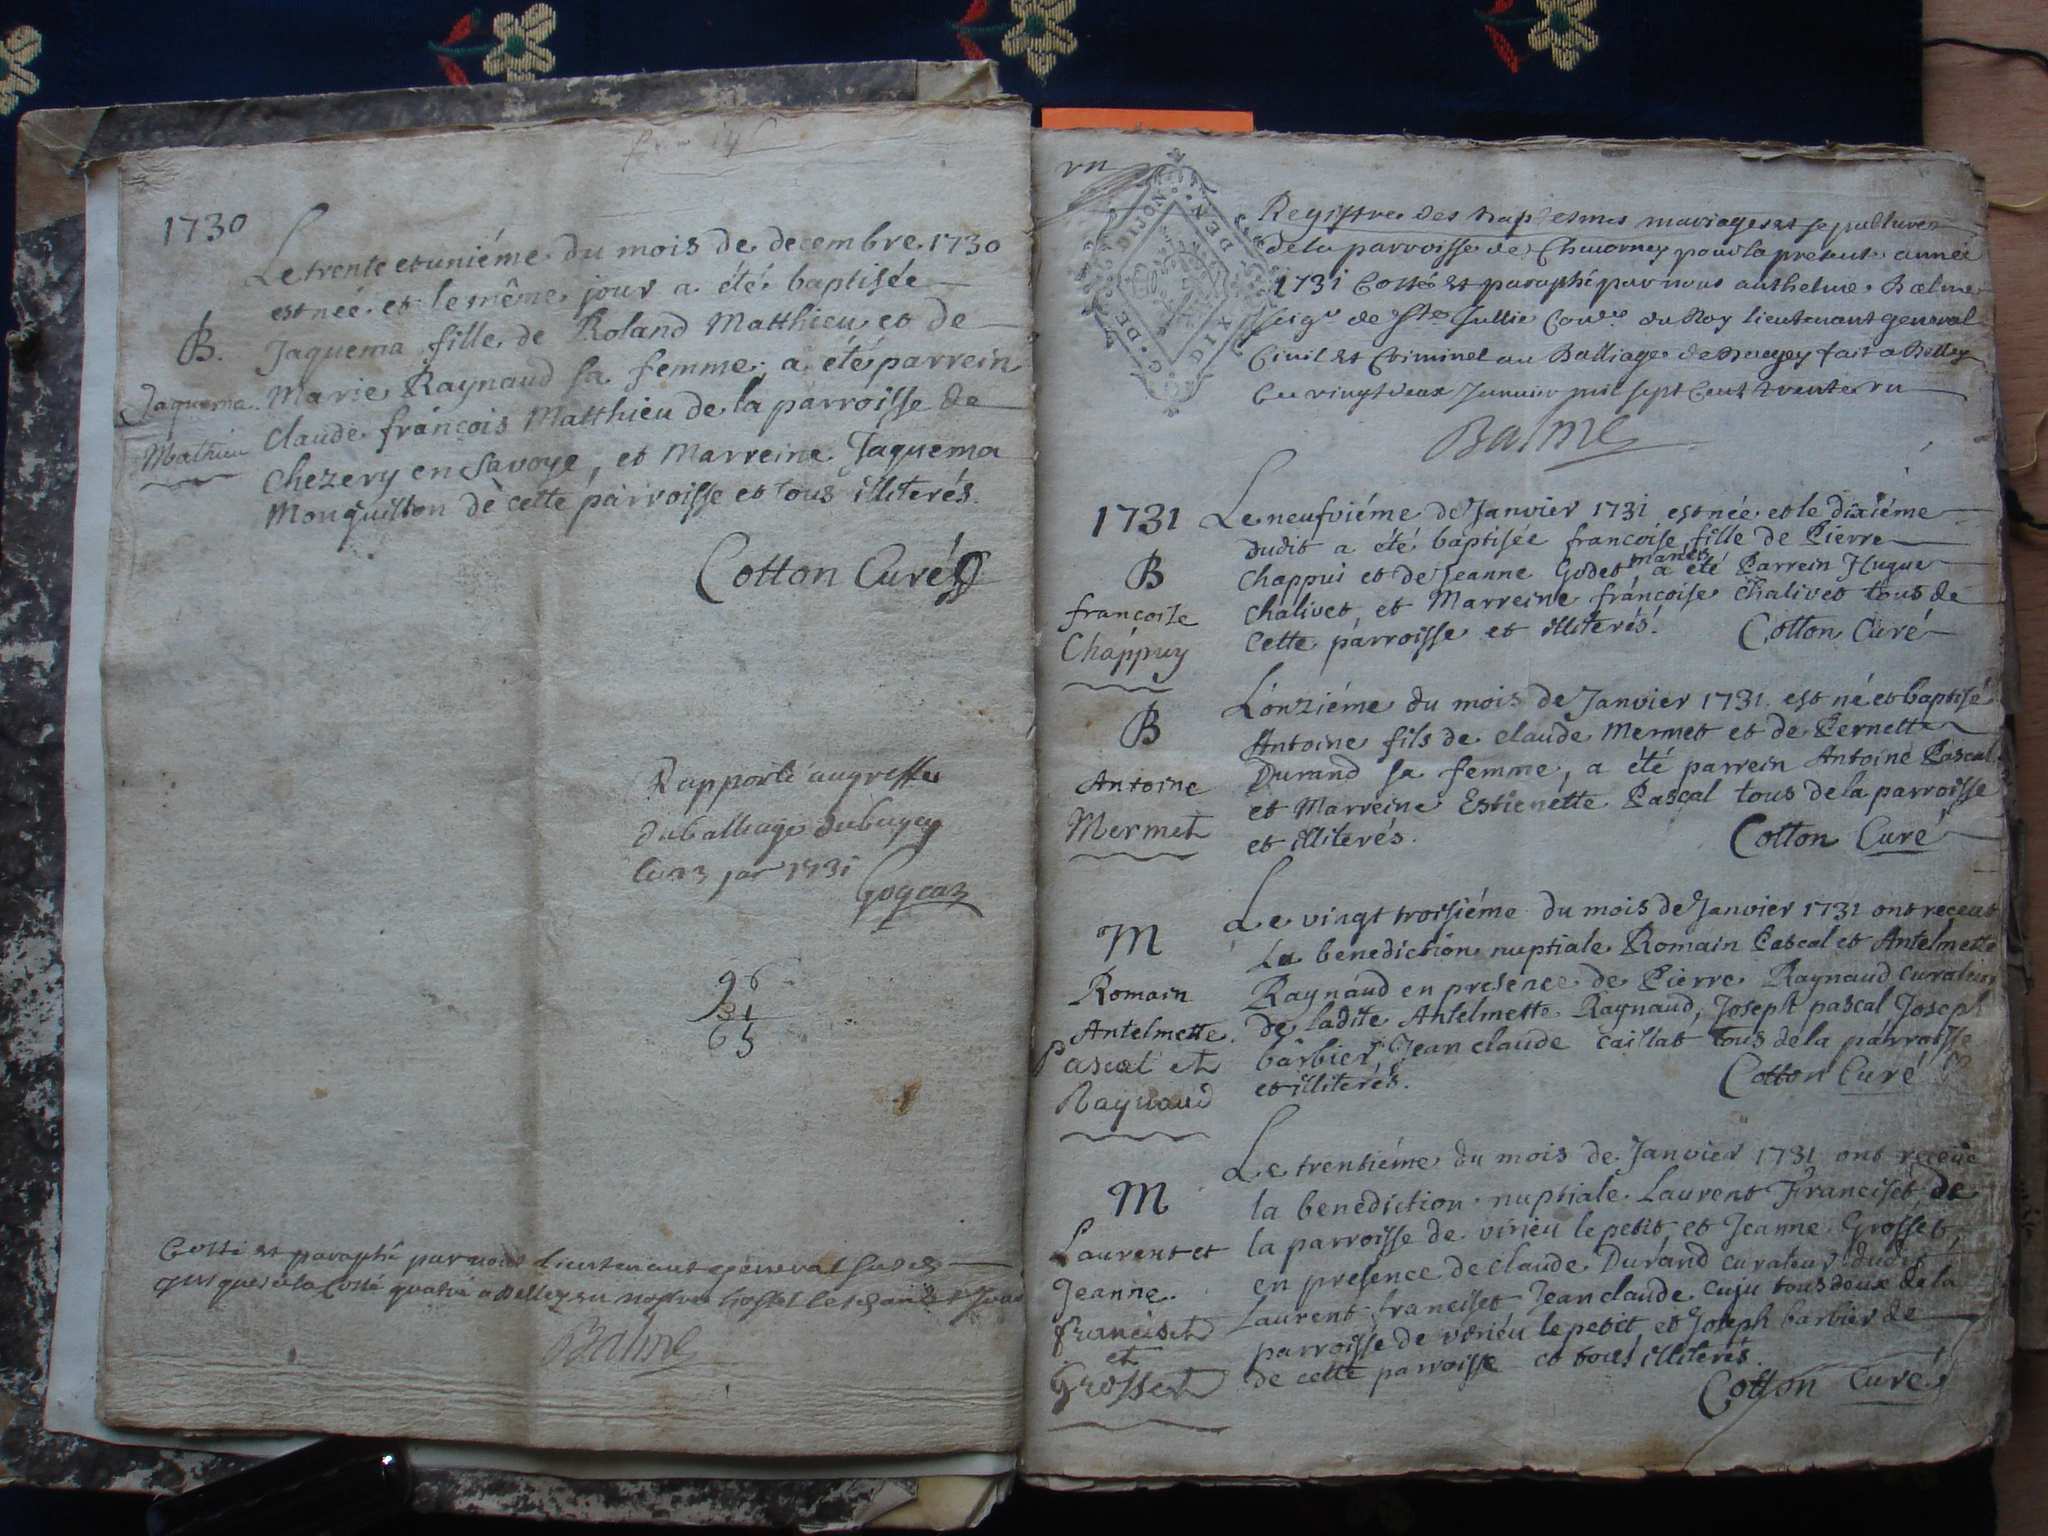 1730
Le trente et uniéme du mois de decembre 1730
est née et le même jour a été baptisée
B.
Jaquema fille de Roland Matthieu et de
Jaquema
Marie Raynaud sa femme; a été parrein
Mathieu
Claude françois Matthieu de la parroisse de
Chezery en Savoye, et Marreine Jaquema
Monguillon de cette parroisse et tous illiterés.
Cotton Curé
Rapporté au greffe
du balliage du bugey
le 23 jar 1731
96
31
65
Cotté et paraphé par nous Lieutenant general
Balme
vn
G. DE DIJON
DEN. XIG
Registre des baptesmes mariages et sepultures
de la parroisse de Chavorney pour la presente année
1731 Cotté et paraphé par nous anthelme Balme
seigr de Ste Jullie Conser du Roy lieutenant general
Civil et Criminel au Balliage de Bugey fait a Belley
Ce vingt deux Janvier mil sept Cent trente vn
Balme
1731
Le neufviéme de Janvier 1731 est née et le dixiéme
dudit a été baptisée françoise fille de Pierre
B
Chappui et de Jeanne Godet mariés a été Parrein Hugue
françoise
Chalivet et Marreine françoise Chalivet tous de
Chappuy
Cette parroisse et illiterés. Cotton Curé
L'onziéme du mois de Janvier 1731 est né et baptisé
B
Antoine fils de Claude Mermet et de Pernette
Antoine
Durand sa femme, a été parrein Antoine Pascal
Mermet
et Marreine Estienette Pascal tous de la parroisse
et illiterés. Cotton Curé
Le vingt troisiéme du mois de Janvier 1731 ont receut
M
La benediction nuptiale Romain Pascal et Antelmette
Romain
Raynaud en presence de Pierre Raynaud curateur
Antelmette
de ladite Antelmette Raynaud, Joseph pascal Joseph
Pascal et
barbier, Jean claude Caillat tous de la parroisse
Raynaud
et illiterés. Cotton Curé
Le trentiéme du mois de Janvier 1731 ont receüe
M
la benediction nuptiale Laurent Franciset de
Laurent et
la parroisse de virieu le petit et Jeanne Grosset,
Jeanne
en presence de Claude Durand curateur dudit
francisct
Laurent franciset Jean claude Cuju tous deux de la
et
parroisse de virieu le petit et Joseph barbier de
Grosset
de cette parroisse et tous illiterés.
Cotton Curé